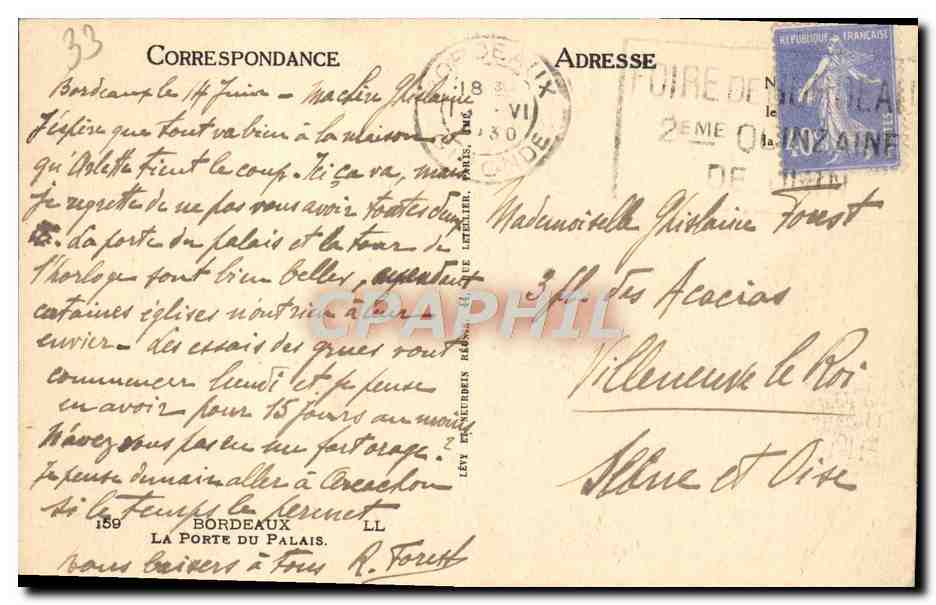 33
CORRESPONDANCE
Bordeaux le 14 Juin - Ma chère Ghislaine
J'espère que tout va bien à la maison et
qu'Arlette tient le coup. Ici ça va, mais
Je regrette de ne pas vous avoir toutes deux
La porte du palais et la tour de
l'horloge sont bien belles, cependant
certaines églises n'ont rien à leur
envier - Les essais des grues vont
commencer lundi et je pense
en avoir pour 15 jours au moins
N'avez vous pas eu un fort orage ?
Je pense demain aller à Arcachon
si le temps le permet
159 BORDEAUX LL
LA PORTE DU PALAIS.
bons baisers à tous R. Forest
LÉVY ET NEURDEIN RÉUNIS, 44, RUE LETELLIER, PARIS, IMP.
BORDEAUX
18 30
VI
30
GIRONDE
ADRESSE
FOIRE DE BORDEAUX
2EME QUINZAINE
DE JUIN
REPUBLIQUE FRANÇAISE
40
Mademoiselle Ghislaine Forest
3 des Acacias
Villeneuve le Roi
Seine et Oise
CPAPHIL